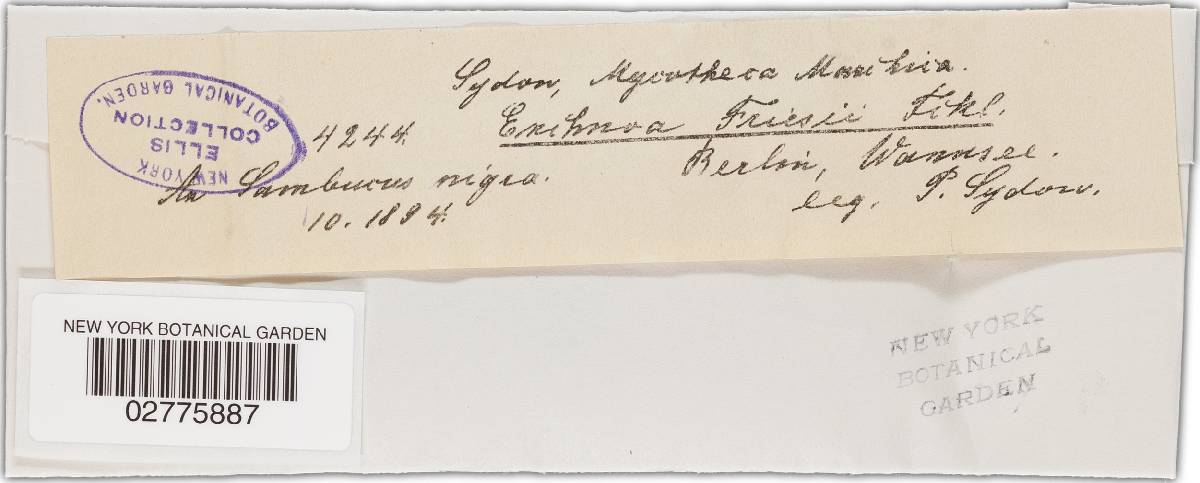 Sydow, Mycotheca Marchica.
4244. Exchnoa Friesii Fckl.
An Sambucus nigra. Berlin, Wannsee.
10. 1894. leg. P. Sydow.
NEW YORK
BOTANICAL GARDEN.
ELLIS
COLLECTION
NEW YORK BOTANICAL GARDEN
02775887
NEW YORK
BOTANICAL
GARDEN